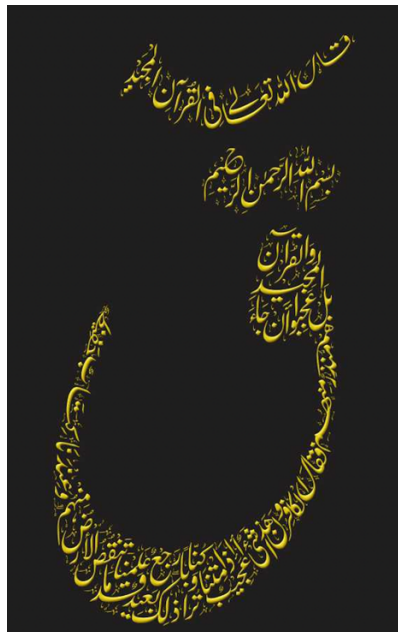 قال الله تعالى في القرآن المجيد
بسم الله الرحمن الرحيم
والقرآن
المجيد
بل عجبوا أن جاء
هم منذر منهم فقال الكافرون هذا شيء عجيب أئذا متنا وكنا ترابا ذلك رجع بعيد قد علمنا ما تنقص الأرض منهم وعندنا كتاب حفيظ